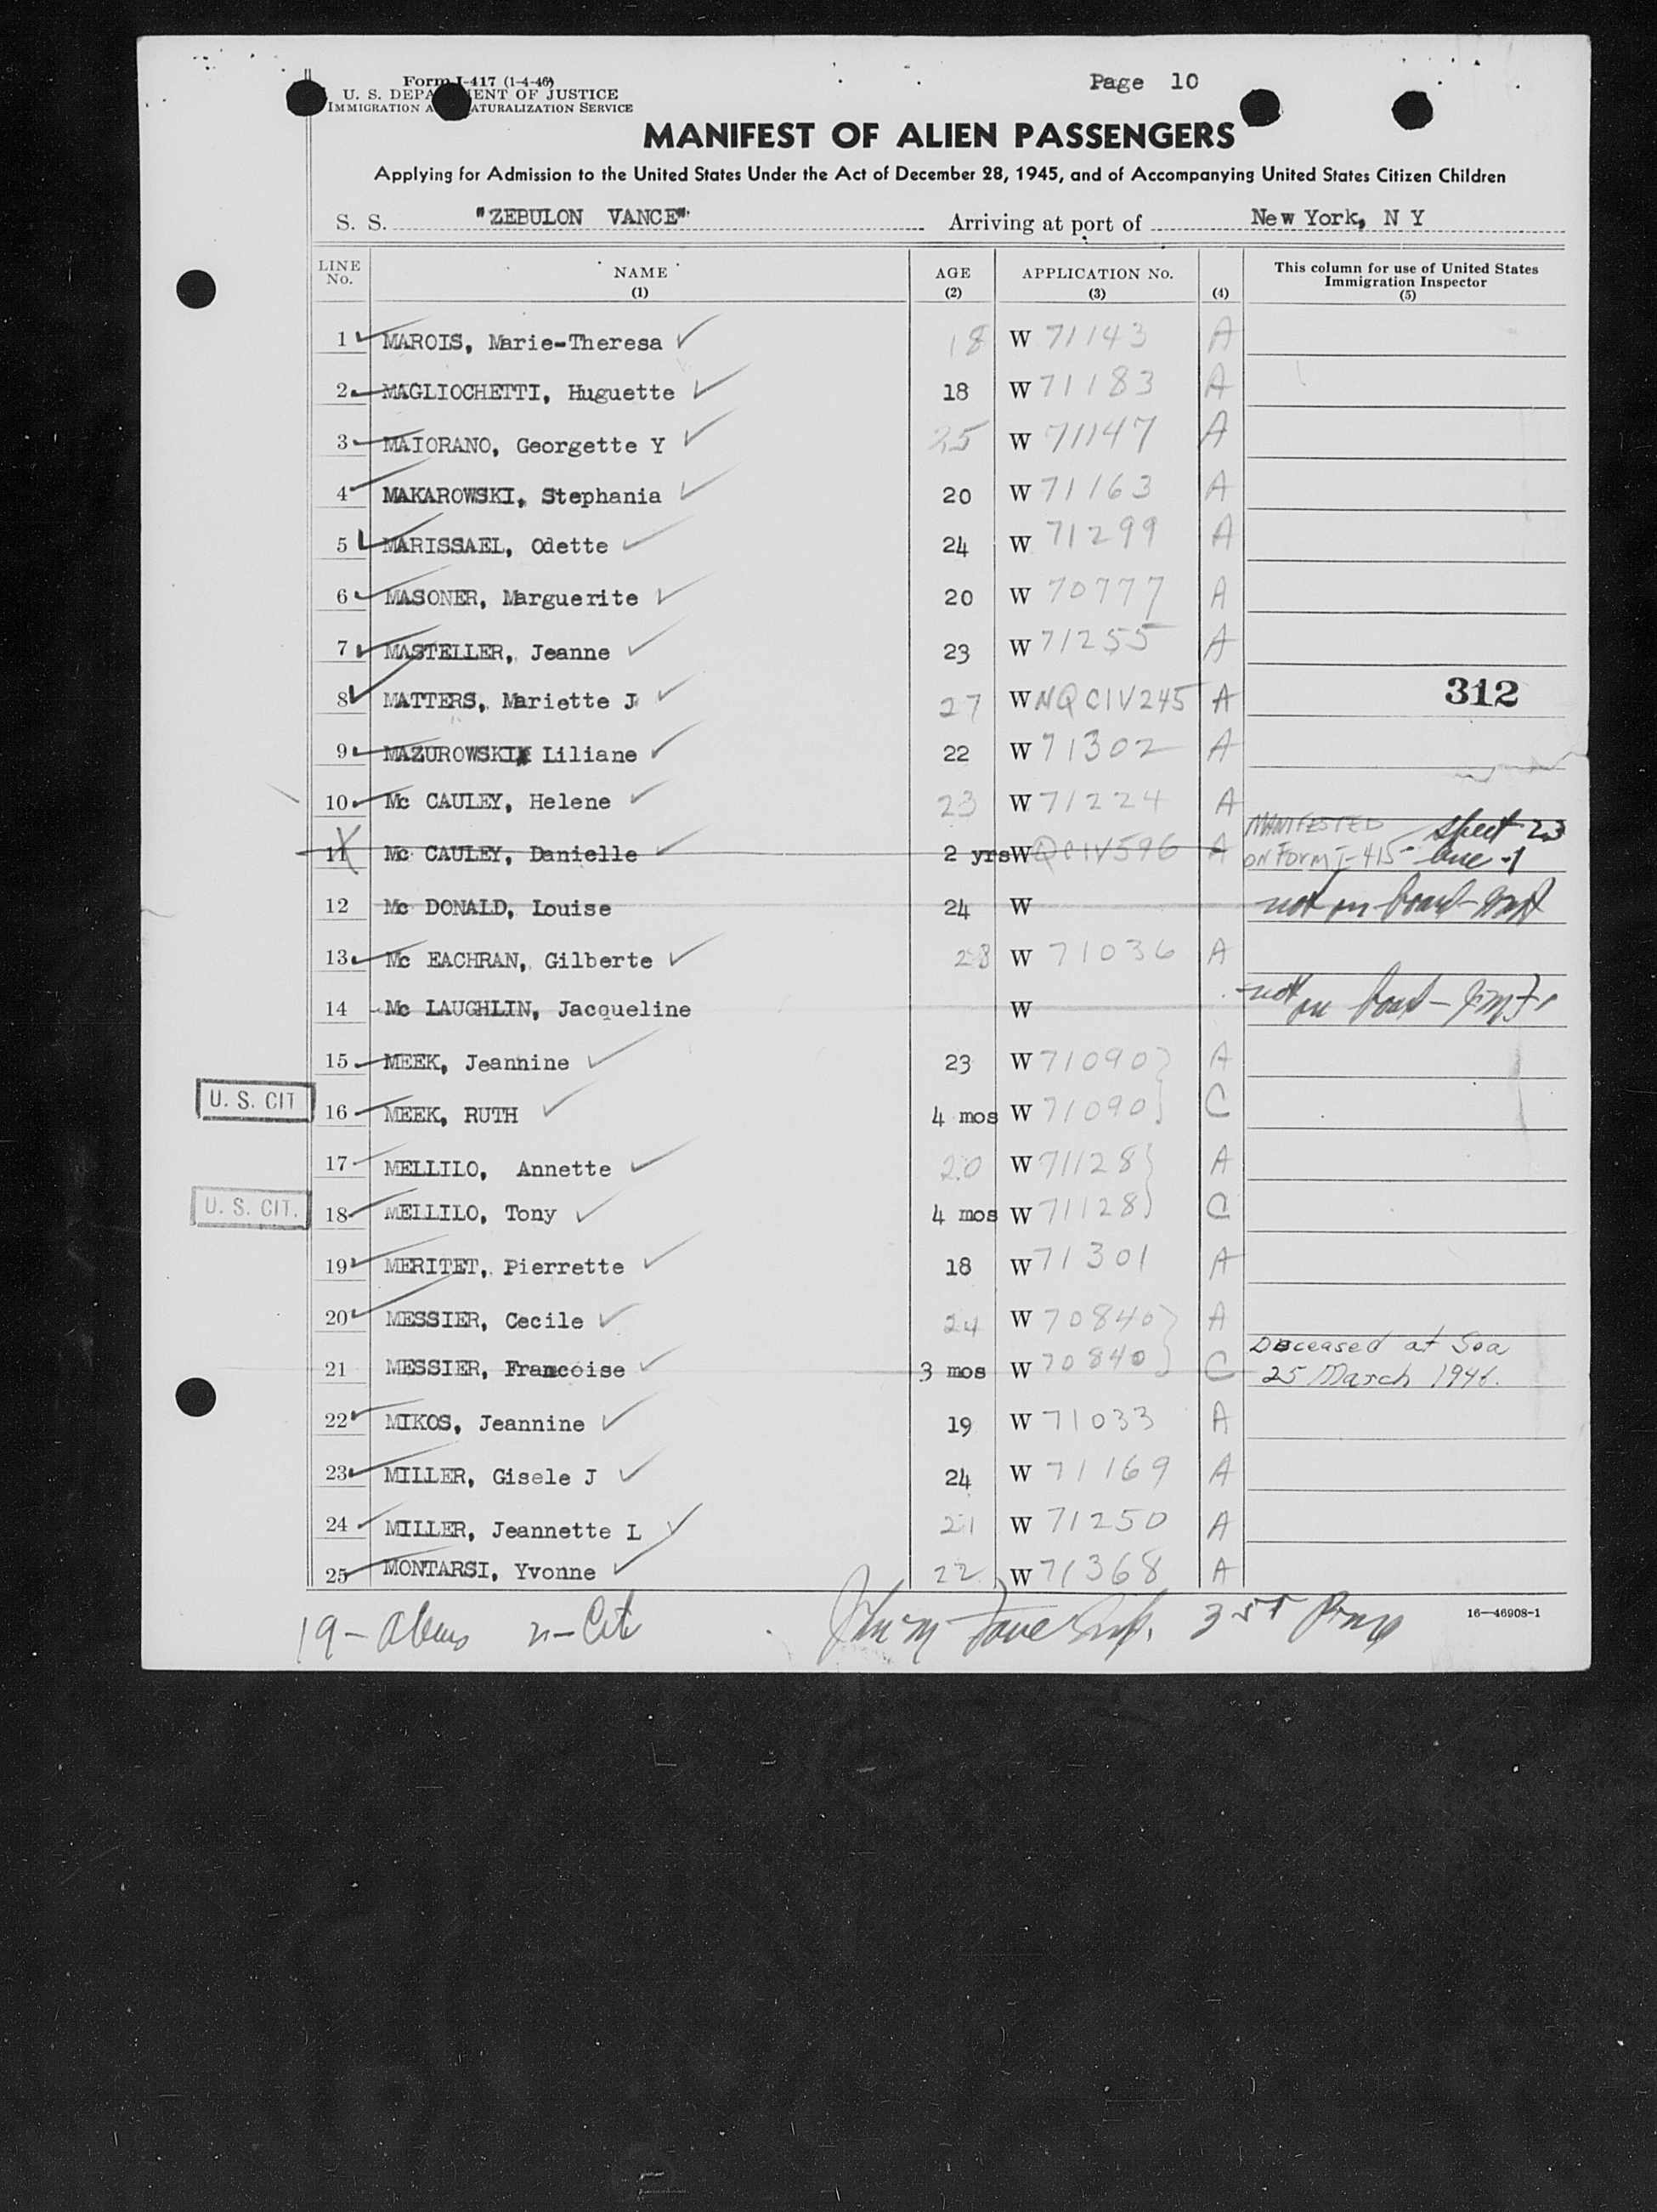 Form I-417 (1-4-46)
Page 10
U. S. DEPARTMENT OF JUSTICE
IMMIGRATION AND NATURALIZATION SERVICE
MANIFEST OF ALIEN PASSENGERS
Applying for Admission to the United States Under the Act of December 28, 1945, and of Accompanying United States Citizen Children
S. S. "ZEBULON VANCE" Arriving at port of New York, N Y
LINE No. NAME (1) AGE (2) APPLICATION No. (3) (4) This column for use of United States Immigration Inspector (5)
1 MAROIS, Marie-Theresa 18 W 71143 A
2 MAGLIOCHETTI, Huguette 18 W 71183 A
3 MAIORANO, Georgette Y 25 W 71147 A
4 MAKAROWSKI, Stephania 20 W 71163 A
5 MARISSAEL, Odette 24 W 71299 A
6 MASONER, Marguerite 20 W 70777 A
7 MASTELLER, Jeanne 23 W 71255 A
8 MATTERS, Mariette J 27 W NQCIV245 A 312
9 MAZUROWSKI Liliane 22 W 71302 A
10 Mc CAULEY, Helene 23 W 71224 A
11 Mc CAULEY, Danielle 2 yrs W QCIV596 A MANIFESTED ON FORM I-415 - sheet 23 line -1
12 Mc DONALD, Louise 24 W not on board
13 Mc EACHRAN, Gilberte 28 W 71036 A
14 Mc LAUGHLIN, Jacqueline W not on board -
15 MEEK, Jeannine 23 W 71090 A
U. S. CIT 16 MEEK, RUTH 4 mos W 71090 C
17 MELLILO, Annette 20 W 71128 A
U. S. CIT. 18 MELLILO, Tony 4 mos W 71128 C
19 MERITET, Pierrette 18 W 71301 A
20 MESSIER, Cecile 24 W 70840 A
21 MESSIER, Francoise 3 mos W 70840 C Deceased at Sea 25 March 1946.
22 MIKOS, Jeannine 19 W 71033 A
23 MILLER, Gisele J 24 W 71169 A
24 MILLER, Jeannette L 21 W 71250 A
25 MONTARSI, Yvonne 22 W 71368 A
19 - Aliens 2 - Cit
16—46908-1